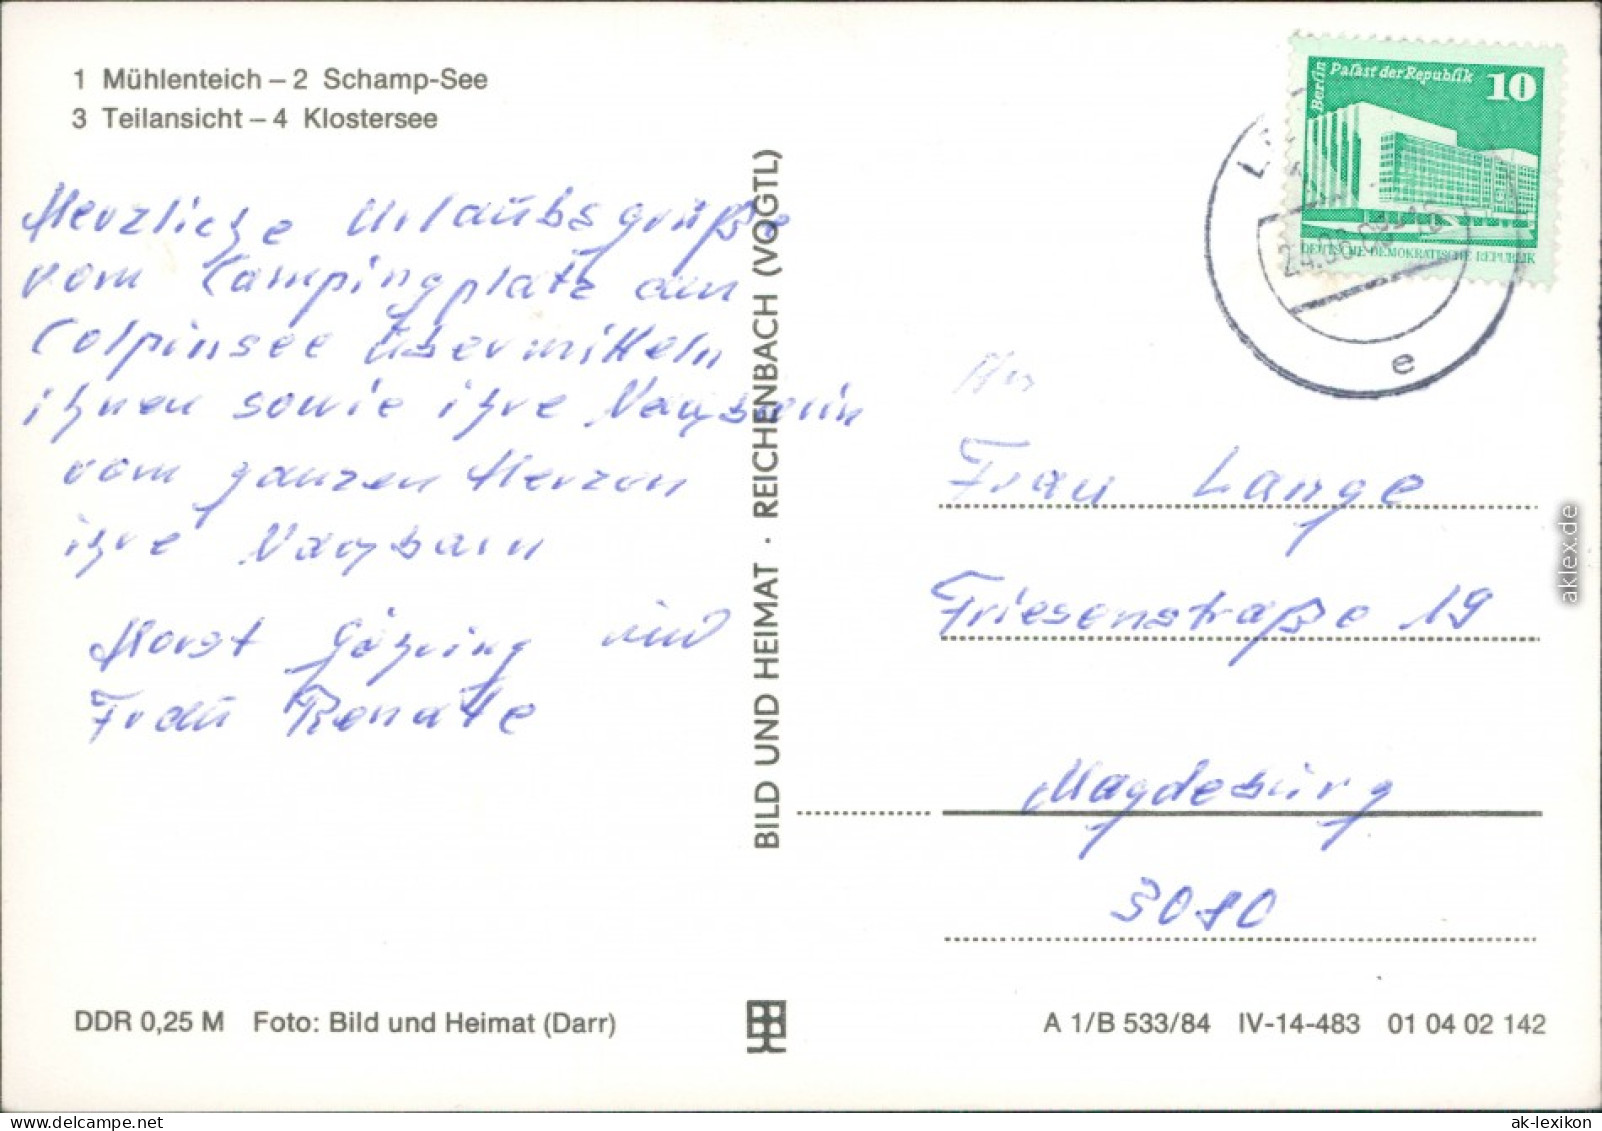 1 Mühlenteich – 2 Schamp-See
3 Teilansicht – 4 Klostersee
Herzliche Urlaubsgrüße
vom Campingplatz am
Colpinsee übermitteln
ihnen sowie ihre Nachbarin
vom ganzen Herzen
ihre Nachbarn
Horst Göhring und
Frau Renate
DDR 0,25 M Foto: Bild und Heimat (Darr)
BILD UND HEIMAT · REICHENBACH (VOGTL)
Berlin
Palast der Republik 10
DEUTSCHE DEMOKRATISCHE REPUBLIK
e
Frau Lange
Friesenstraße 19
Magdeburg
3010
A 1/B 533/84 IV-14-483 01 04 02 142
aklex.de
ak-lexikon